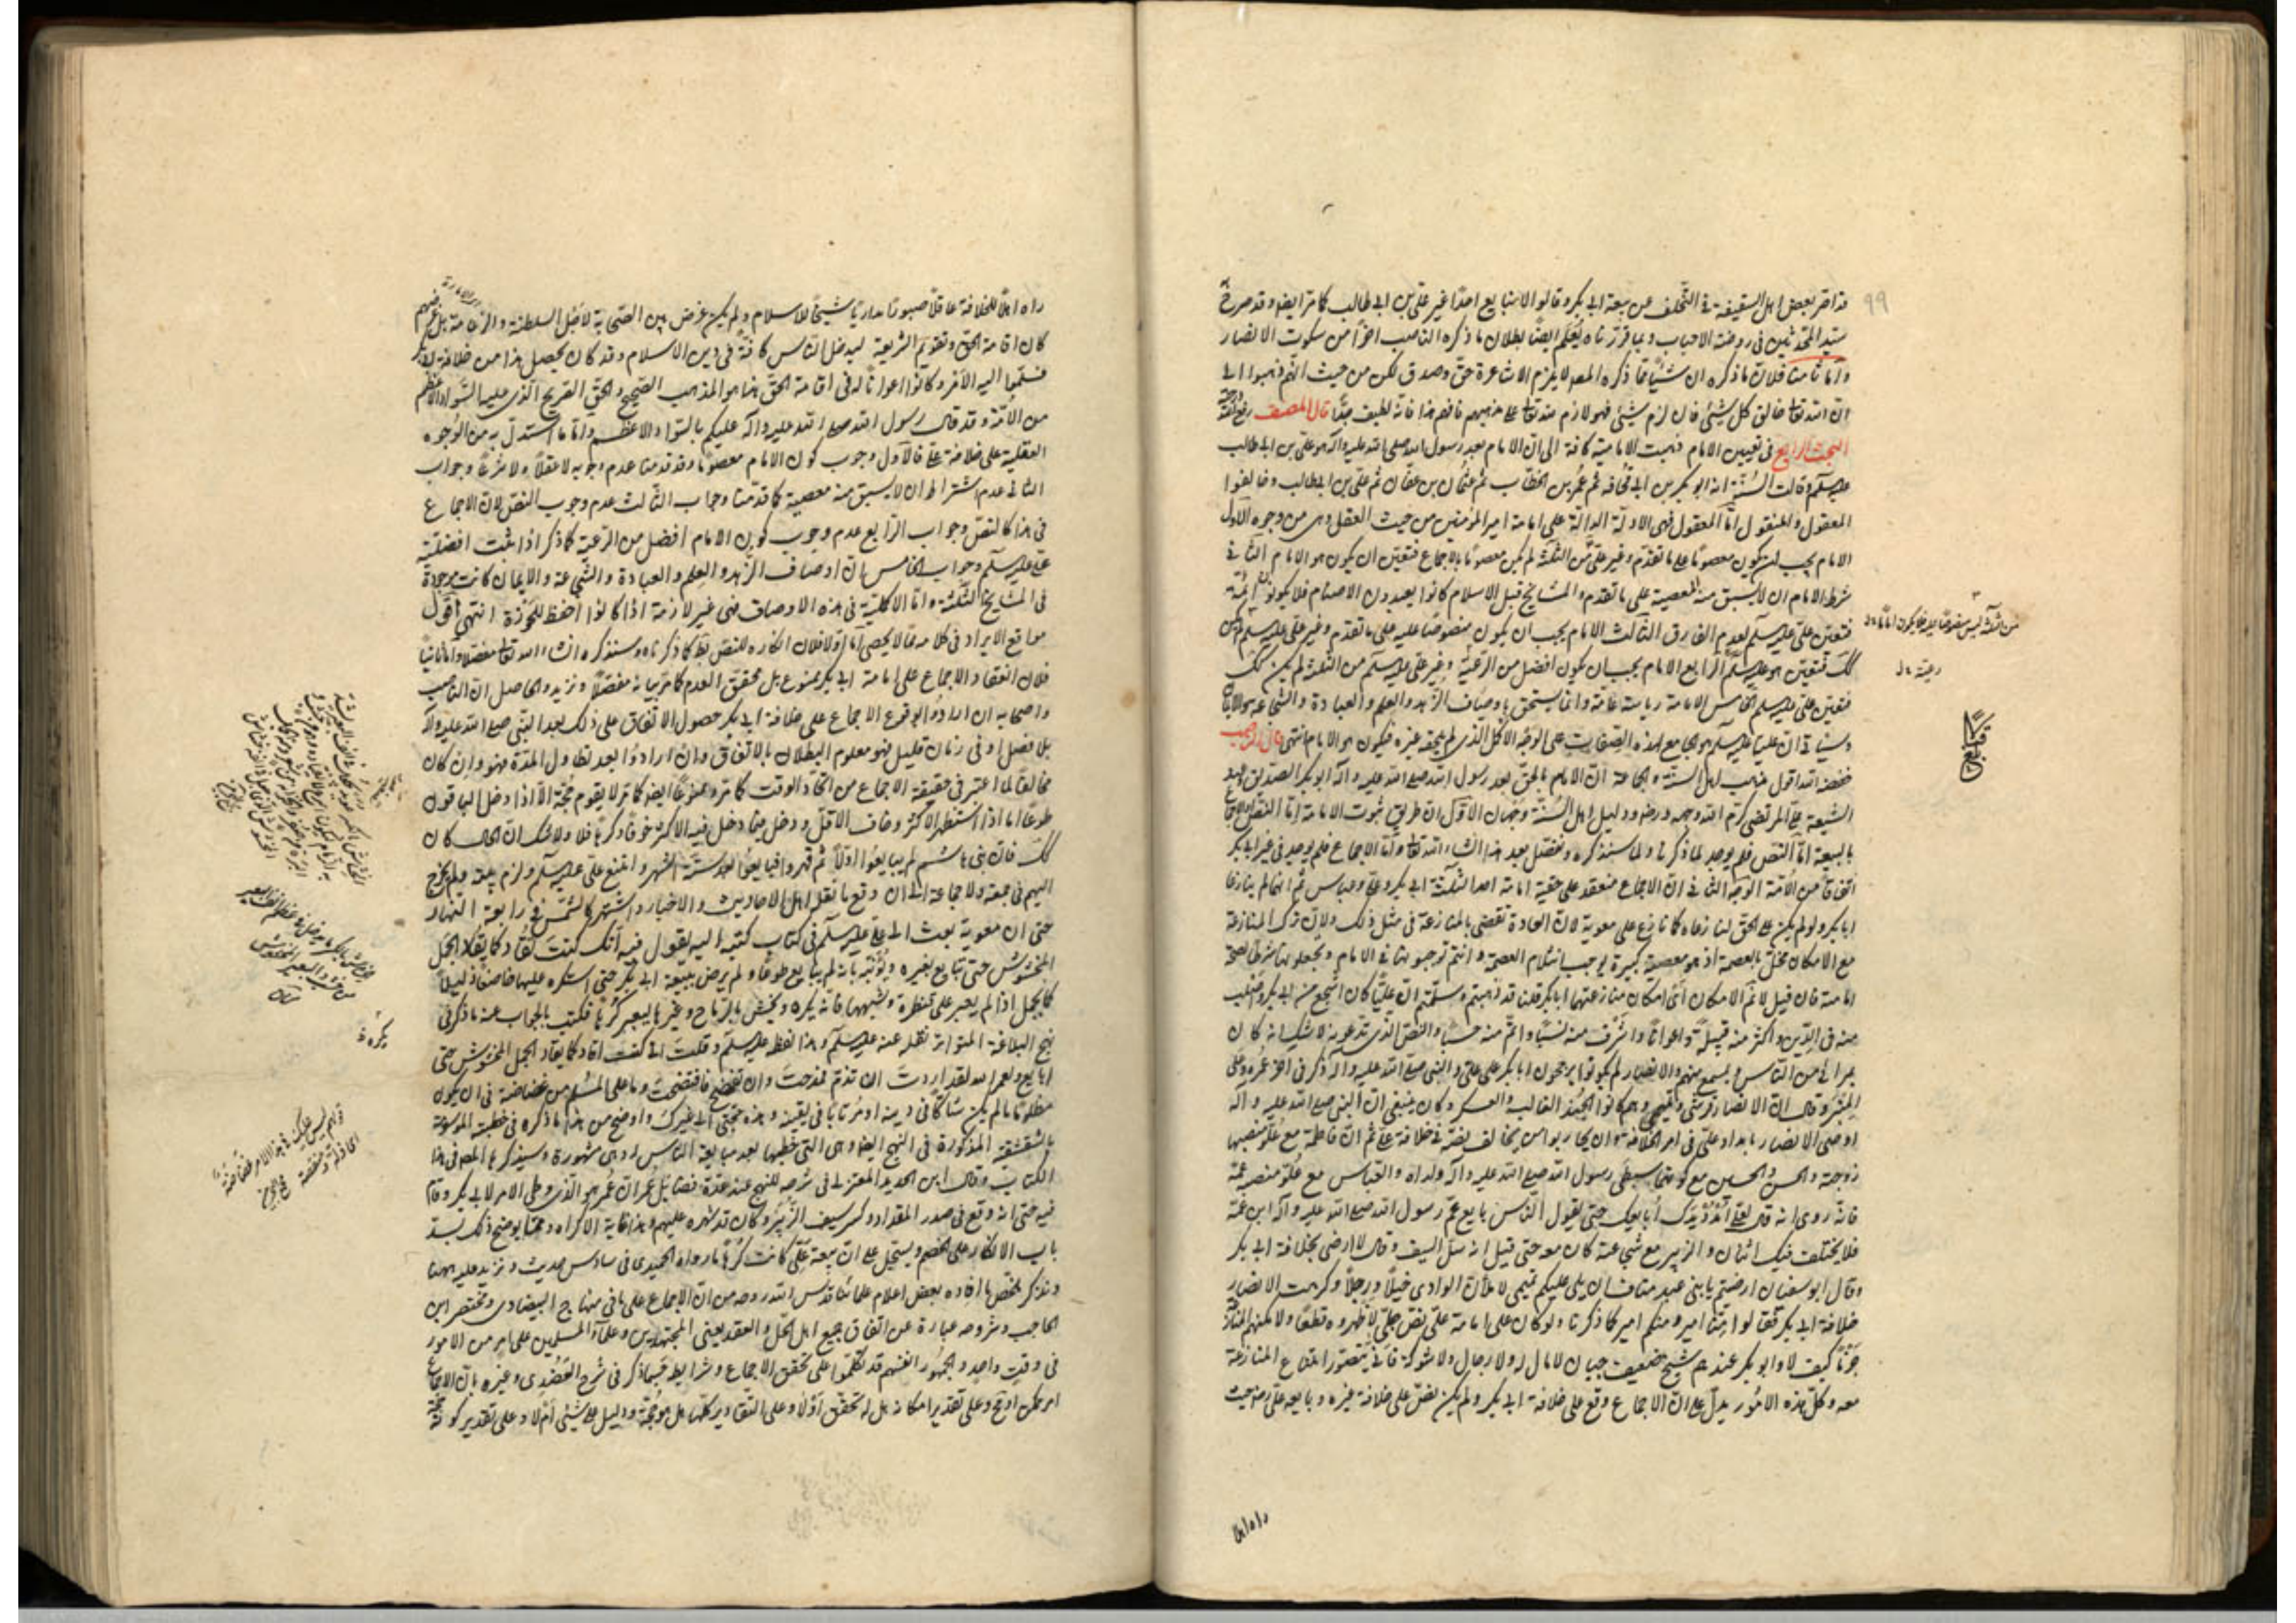 عذر بعض اهل السقيفة في التخلف عن بيعة ابي بكر وقالوا لا نبايع احدا غير علي بن ابي طالب كما مر ايضا وقد صرح به
سيد المحدثين في روضة الاحباب وبما قررناه يعلم ايضا بطلان ما ذكره الناصب اخرا من سكوت الانصار
واما ثامنا فلان ما ذكره ان شيئا مما ذكره المص لا يلزم الاشاعرة حق وصدق لكن من حيث انهم ذهبوا الى
ان الله تعالى خالق كل شيء فان لزم شيء فهو لازم منه تعالى على مذهبهم فافهم هذا فانه لطيف جدا قال المصنف رفع الله درجته
المبحث الرابع في تعيين الامام ذهبت الامامية كافة الى ان الامام بعد رسول الله صلى الله عليه وآله هو علي بن ابي طالب
عليه السلم وقالت السنة انه ابو بكر بن ابي قحافه ثم عمر بن الخطاب ثم عثمان بن عفان ثم علي بن ابي طالب وخالفوا
المعقول والمنقول اما المعقول فهي الادلة الدالة على امامة امير المؤمنين من حيث العقل وهي من وجوه الاول
الامام يجب ان يكون معصوما على ما تقدم وغير علي من الثلثة لم يكن معصوما بالاجماع فتعين ان يكون هو الامام الثاني
شرط الامام ان لا يسبق منه المعصية على ما تقدم والمشايخ قبل الاسلام كانوا يعبدون الاصنام فلا يكونوا ائمة
فتعين علي عليه السلم لعدم الفارق الثالث الامام يجب ان يكون منصوصا عليه على ما تقدم وغير علي عليه السلم ليس
كك فتعين هو عليه السلم الرابع الامام يجب ان يكون افضل من الرعية وغير علي عليه السلم من الثلثة لم يكن كك
فتعين علي عليه السلم الخامس الامامة رياسة عامة وانما يستحق باوصاف الزهد والعلم والعبادة والشجاعة والايمان
وسياتي ان عليا عليه السلم هو الجامع لهذه الصفات على الوجه الاكمل الذي لم يلحقه غيره فيكون هو الامام انتهى قال الناصب
خفضه الله اقول مذهب اهل السنة والجماعة ان الامام بالحق بعد رسول الله صلى الله عليه وآله ابو بكر الصديق وعند
الشيعة علي المرتضى كرم الله وجهه ورضه ودليل اهل السنة وجهان الاول ان طريق ثبوت الامامة اما النص او الاجماع
بالبيعة اما النص فلم يوجد لما ذكرنا ولما سنذكره ونفصل بعد هذا انشاء الله تعالى واما الاجماع فلم يوجد في غير ابي بكر
اتفاقا من الامة الوجه الثاني ان الاجماع منعقد على حقية امامة احد الثلثة ابي بكر وعلي وعباس ثم انهما لم ينازعا
ابا بكر ولو لم يكن على الحق لنازعاه كما نازع علي معوية لان العادة تقضي بالمنازعة في مثل ذلك ولان ترك المنازعة
مع الامكان مخل بالعصمة اذ هو معصية كبيرة يوجب انثلام العصمة وانتم توجبونها في الامام وتجعلونها شرطا لصحة
امامته فان قيل لا نم الامكان اي امكان منازعتهما ابا بكر قلنا قد ذهبتم وسلمتم ان عليا كان اشجع من ابي بكر واصلب
منه في الدين واكثر منه قبيلة واعوانا واشرف منه نسبا واتم منه حسبا والنص الذي تدعونه لا شك انه كان
بمرأى من الناس وبمسمع منهم والانصار لم يكونوا يرجحون ابا بكر على علي والنبي صلى الله عليه وآله ذكر في آخر عمره على
المنبر وقال ان الانصار كرشي وعيبتي وهم كانوا الجند الغالب والعسكر وكان ينبغي ان النبي صلى الله عليه وآله
اوصى الانصار بامداد علي في امر الخلافة وان يحاربوا من يخالف نصه في خلافة علي ثم ان فاطمة مع علو منصبها
زوجته والحسن والحسين مع كونهما سبطي رسول الله صلى الله عليه وآله ولداه والعباس مع علو منصبه عمه
فانه روي انه قال لعلي امدد يدك ابايعك حتى يقول الناس بايع عم رسول الله صلى الله عليه وآله ابن عمه
فلا يختلف فيك اثنان والزبير مع شجاعته كان معه حتى قيل انه سل السيف وقال لا ارضى بخلافة ابي بكر
وقال ابو سفيان ارضيتم يا بني عبد مناف ان يلي عليكم تيمي لاملأن الوادي خيلا ورجلا وكرهت الانصار
خلافة ابي بكر فقالوا منا امير ومنكم امير كما ذكرنا ولو كان على امامة علي نص جلي لاظهروه قطعا ولامكنهم المنازعة
جزما كيف لا وابو بكر عندهم شيخ ضعيف جبان لا مال له ولا رجال ولا شوكة فانى يتصور امتناع المنازعة
معه وكل هذه الامور يدل على ان الاجماع وقع على خلافة ابي بكر ولم يكن نص على خلافة غيره وبايعه علي من حيث
راه اهلا
٩٩
من الثلاثة ليس
رعيته
راه اهلا للخلافة عاقلا صبورا مداريا شيخا للاسلام ولم يكن غرض بين الصحابة لاجل السلطنة والزعامة بل غرضهم
كان اقامة الحق وتقويم الشريعة ليدخل الناس كافة في دين الاسلام وقد كان يحصل هذا من خلافة ابي بكر
فسلموا اليه الامر وكانوا اعوانا له في اقامة الحق هذا هو المذهب الصحيح والحق الصريح الذي عليه السواد الاعظم
من الامة وقد قال رسول الله صلى الله عليه وآله عليكم بالسواد الاعظم واما ما استدل به من الوجوه
العقلية على خلافة علي فالاول وجوب كون الامام معصوما وقد قدمنا عدم وجوبه لا عقلا ولا شرعا وجواب
الثاني عدم اشتراط ان لا يسبق منه معصية كما قدمنا وجواب الثالث عدم وجوب النص لان الاجماع
في هذا كالنص وجواب الرابع عدم وجوب كون الامام افضل من الرعية كما ذكر اذا ثبت افضلية
علي عليه السلم وجواب الخامس بان اوصاف الزهد والعلم والعبادة والشجاعة والايمان كانت موجودة
في المشايخ الثلثة واما الاكملية في هذه الاوصاف فهي غير لازمة اذا كانوا احفظ للحوزة انتهى اقول
مواقع الايراد في كلامه مما لا يحصى اما اولا فلان انكاره للنص بط كما ذكرناه وسنذكره انشاء الله تعالى مفصلا واما ثانيا
فلان انعقاد الاجماع على امامة ابي بكر ممنوع بل محقق العدم كما مر بيانه مفصلا ونزيد والحاصل ان الناصب
واصحابه ان ارادوا بوقوع الاجماع على خلافة ابي بكر حصول الاتفاق على ذلك بعد النبي صلى الله عليه وآله
بلا فصل او في زمان قليل فهو معلوم البطلان بالاتفاق وان ارادوا بعد تطاول المدة فهو وان كان
مخالفا لما اعتبر في حقيقة الاجماع من اتحاد الوقت كما مر وممنوعا ايضا كما مر لا يقوم حجة الا اذا دخل الباقون
طوعا اما اذا استظهر الاكثر وخاف الاقل ودخل فيما دخل فيه الاكثر خوفا وكرها فلا ولا شك ان الحال كان
كك فان بني هاشم لم يبايعوا اولا ثم قهروا فبايعوا بعد ستة اشهر وامتنع علي عليه السلم ولزم بيته ولم يخرج
اليهم في جمعة ولا جماعة الى ان وقع ما نقله اهل الاحاديث والاخبار واشتهر كالشمس في رابعة النهار
حتى ان معوية بعث الى علي عليه السلم في كتاب كتبه اليه يقول فيه انك كنت تقاد كما يقاد الجمل
المخشوش حتى تبايع بغيره ويؤنبه بانه لم يبايع طوعا ولم يرض ببيعة ابي بكر حتى استكره عليها خاضعا ذليلا
كالجمل اذا لم يعبر على قنطرة وشبهها فانه يكره ويخش بالرماح وغيرها ليعبر كرها فكتب بالجواب عنه ما ذكر في
نهج البلاغة المتواتر نقله عنه عليه السلم وهذا لفظه عليه السلم وقلت اني كنت اقاد كما يقاد الجمل المخشوش حتى
ابايع ولعمر الله لقد اردت ان تذم فمدحت وان تفضح فافتضحت وما على المسلم من غضاضة في ان يكون
مظلوما ما لم يكن شاكا في دينه او مرتابا في يقينه وهذه حجتي الى غيرك واوضح من هذا ما ذكره في خطبته الموسومة
بالشقشقية المذكورة في النهج ايضا وهي التي خطبها بعد مبايعة الناس له وهي مشهورة وسيذكرها المص في هذا
الكتاب وقال ابن الحديد المعتزلي في شرحه للنهج عند عدة فضايل عمر ان عمر هو الذي وطى الامر لابي بكر وقام
فيه حتى انه وقع في صدر المقداد وكسر سيف الزبير وكان قد شهره عليهم وهذا غاية الاكراه ومما يوضح ذلك يسد
باب الانكار على الخصم ويسجل على ان بيعة علي كانت كرها ما رواه الحميدي في سادس حديث ونزيد عليه ههنا
ونذكر ملخص ما افاده بعض اعلام علمائنا قدس الله روحه من ان الاجماع على ما في منهاج البيضاوي ومختصر ابن
الحاجب وشروحه عبارة عن اتفاق جميع اهل الحل والعقد يعني المجتهدين وعلماء المسلمين على امر من الامور
في وقت واحد والجمهور انفسهم قد تكلموا على تحقق الاجماع وشرايط حسبما ذكر في شرح العضدي وغيره بان الاجماع
امر ممكن او مح وعلى تقدير امكانه هل له تحقق او لا وعلى التقادير كلها هل هو حجة ودليل على شيء ام لا وعلى تقدير كونه حجة